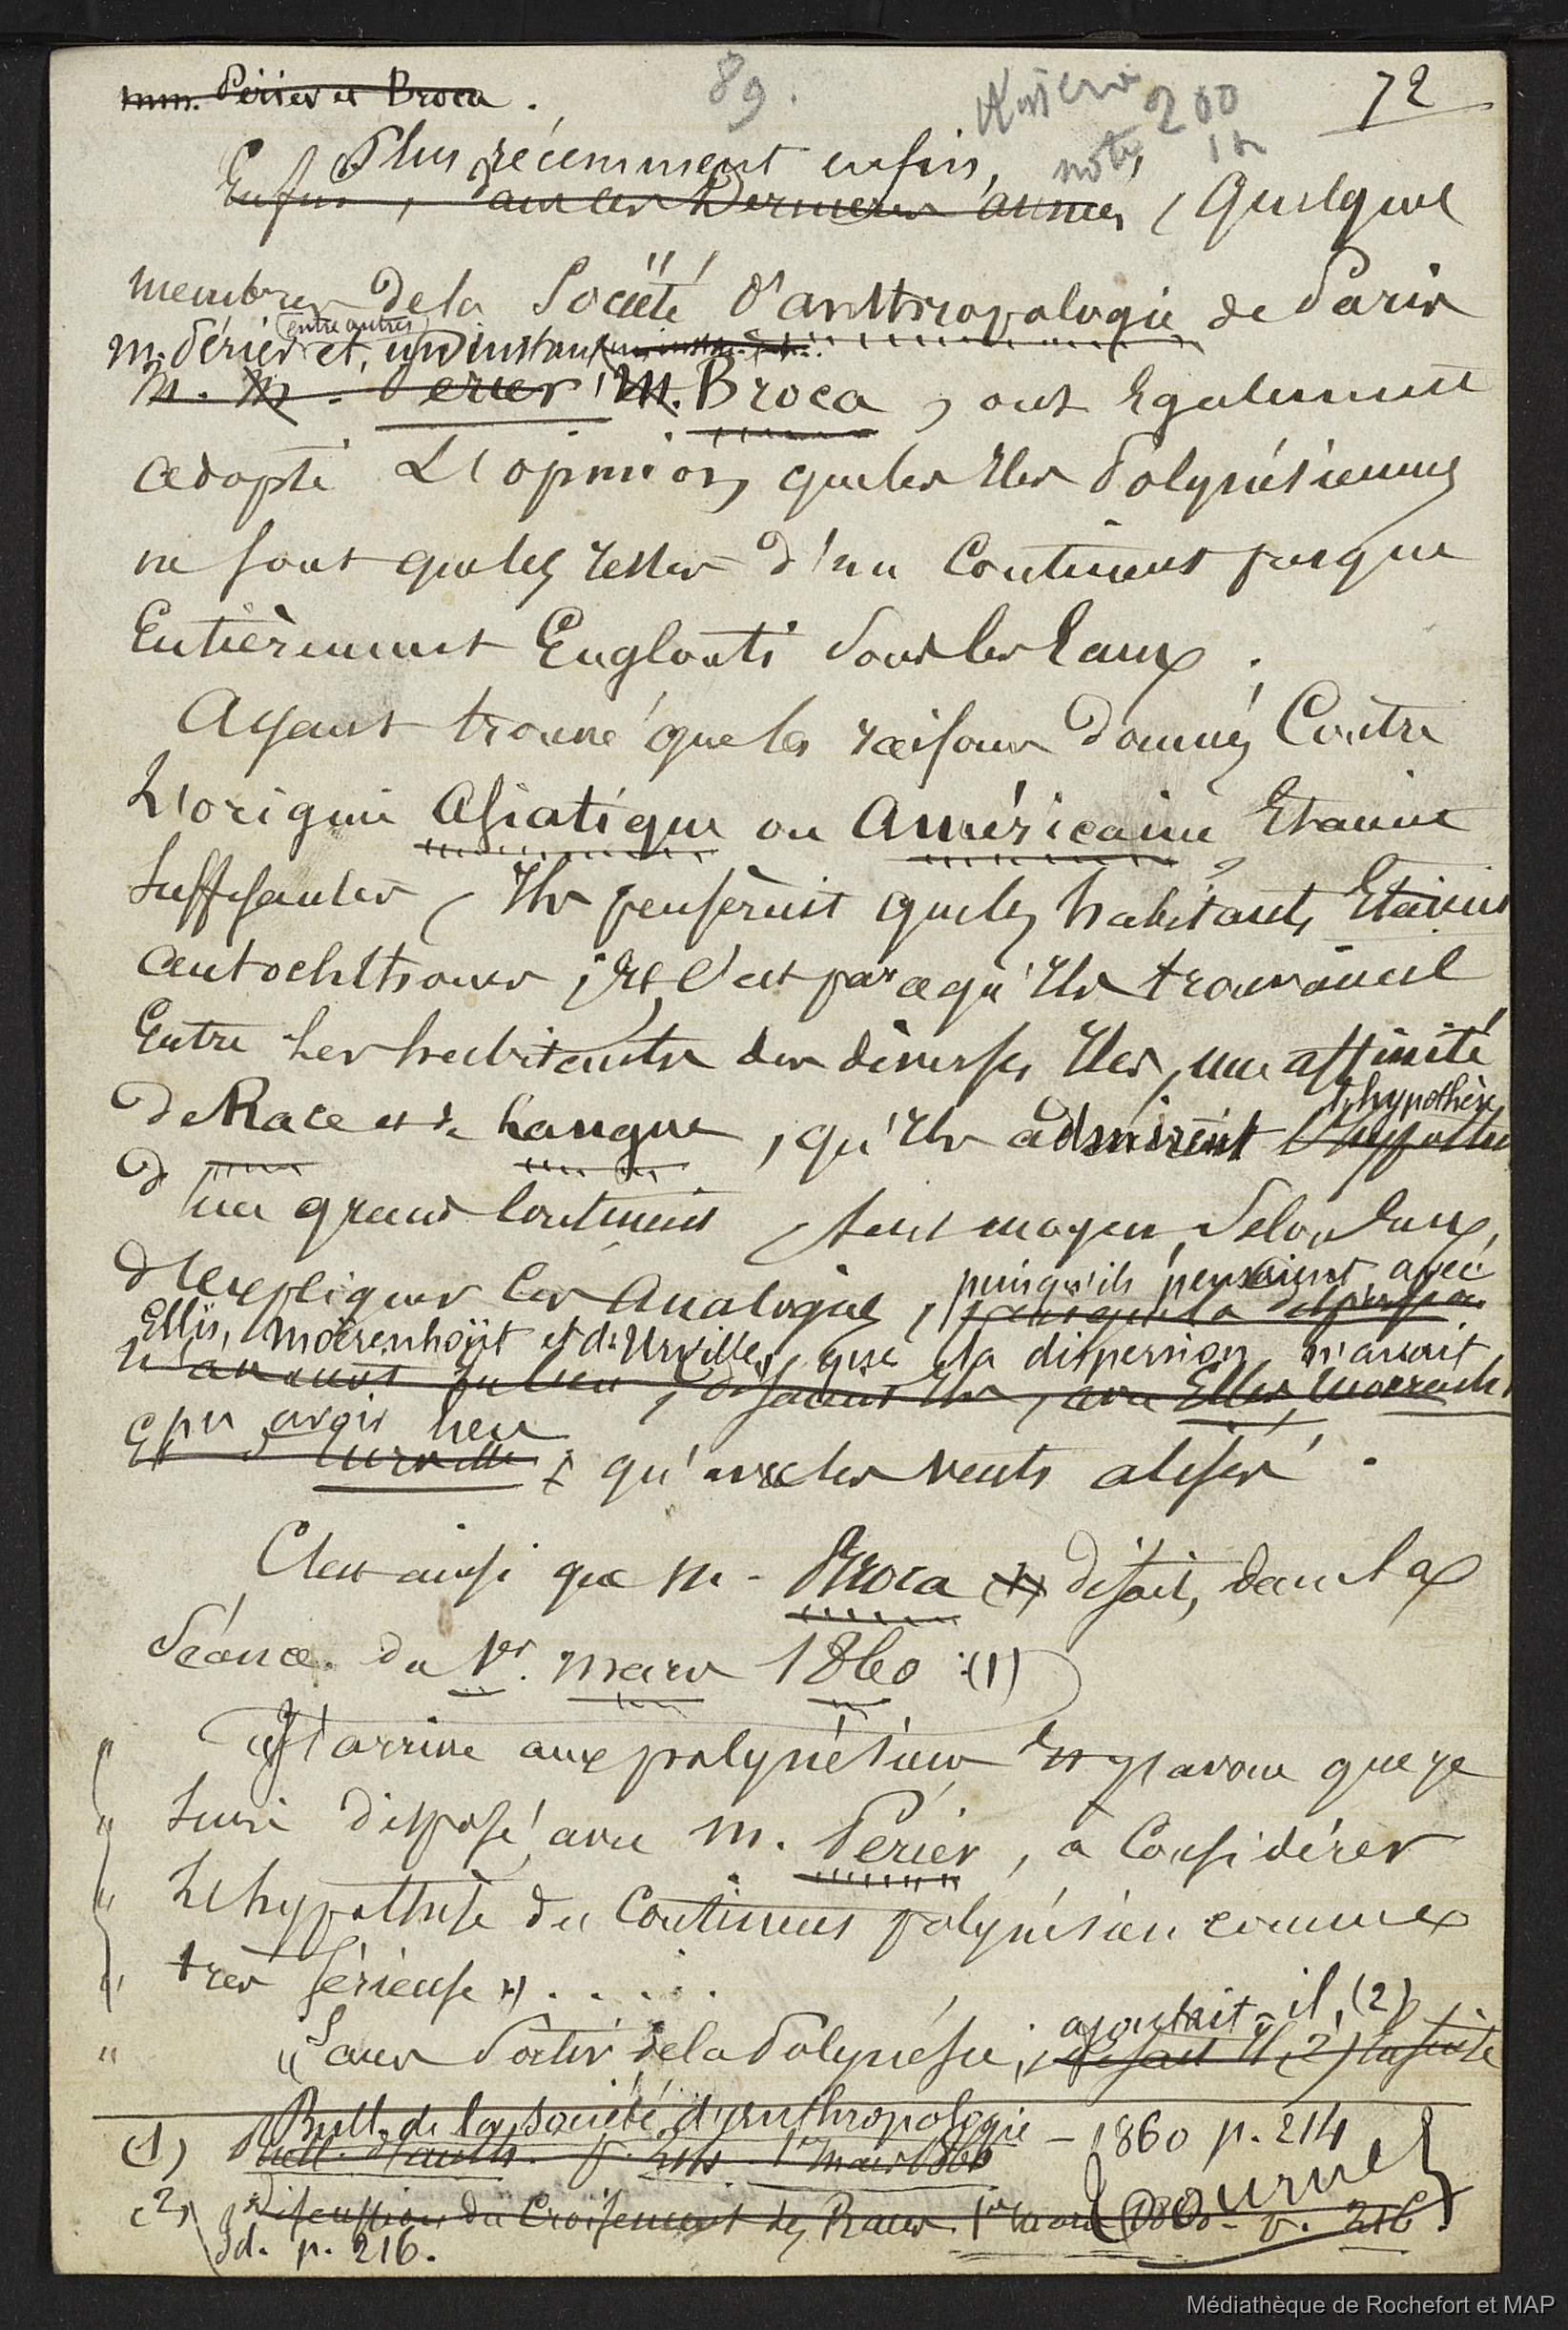 mm. Périer et Broca.
89.
200
note
72
Plus récemment enfin,
Enfin, dans les dernieres années, Quelques
membres de la Société d'anthropologie de Paris
M. Périer (entre autres) et, un instant
M. M. Perier, M. Broca, ont Egalement
adopté L'opinion, que les Iles Polynésiennes
ne sont que les restes d'un Continent presque
Entièrement Englouti sous les Eaux.
Ayant trouvé que les raisons données Contre
L'origine Asiatique ou Américaine Etaient
Suffisantes, Ils pensèrent que les habitants Etaient
autochthones; Et, C'est parce qu'Ils trouvaient
Entre les habitants des diverses Iles, une affinité
de Race et de Langue, qu'Ils admirent l'hypothèse
d'un grand Continent, seul moyen, Selon Eux,
d'Expliquer les Analogies, puisqu'ils pensaient, avec
Ellis, Moërenhoüt et d'Urville, que la dispersion n'avait
n'avait pu lieu, disaient Ils, avec Ellis, Moerenh
pu avoir lieu
Et d'Urville, qu'avec les vents alisés.
C'est ainsi que M. Broca (1) disait, dans la
Séance du 1er. mars 1860 : (1)
"J'arrive aux polynésiens Et j'avoue que je
" suis disposé, avec M. Périer, à Considérer
" L'hypothèse du Continent polynésien comme
" très sérieuse" . . . . .
" "Sans Sortir de la Polynésie, ajoutait-il, (2)
disait il (2) ensuite
(1) Bull. de la Société d'anthropologie - 1860 p. 214
Bull. d'anth. p. 214. 1er mars 1860
(2) Discussion du Croisement des Races. 1er mars 1860 - p. 216.
Id. p. 216.
Tournez
Médiathèque de Rochefort et MAP